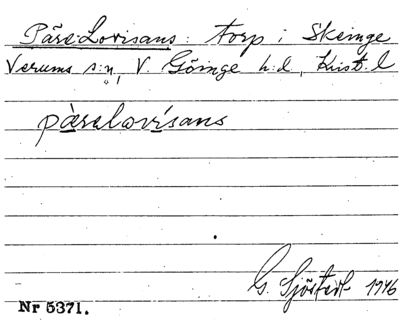 Päre-Lovisans: torp i Skeinge
Verums s:n, V. Göinge h:d, Krist. l
pàralovísans
G. Sjöstedt 1946
Nr 5371.